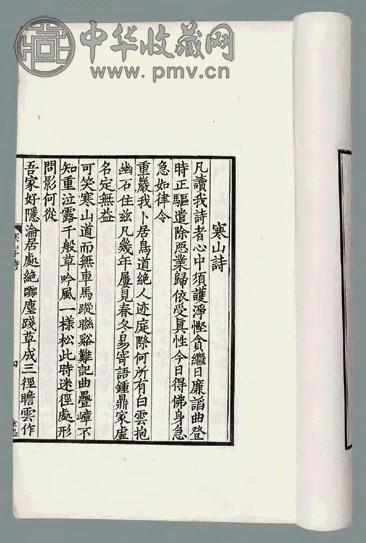 中华收藏网
www.pmv.cn
寒山詩
凡讀我詩者心中須護淨慳貪繼日廉諂曲登
時正驅遣除惡業歸依受真性今日得佛身急
急如律令
重巖我卜居鳥道絕人迹庭際何所有白雲抱
幽石住茲凡幾年屢見春冬易寄語鍾鼎家虛
名定無益
可笑寒山道而無車馬蹤聯谿難記曲疊嶂不
知重泣露千般草吟風一樣松此時迷徑處形
問影何從
吾家好隱淪居處絕囂塵踐草成三徑瞻雲作